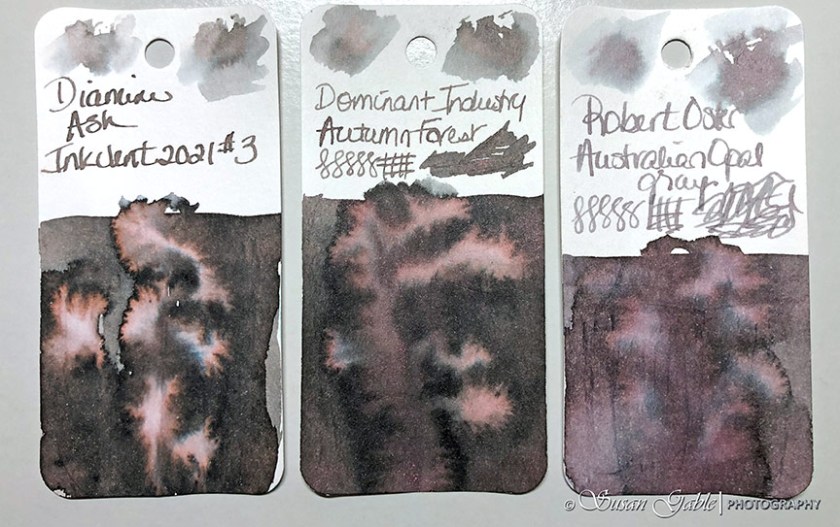 Diamine
Ash
Inkvent 2021 #3
Dominant Industry
Autumn Forest
Robert Oster
Australian Opal
gray
© Susan Gable | PHOTOGRAPHY